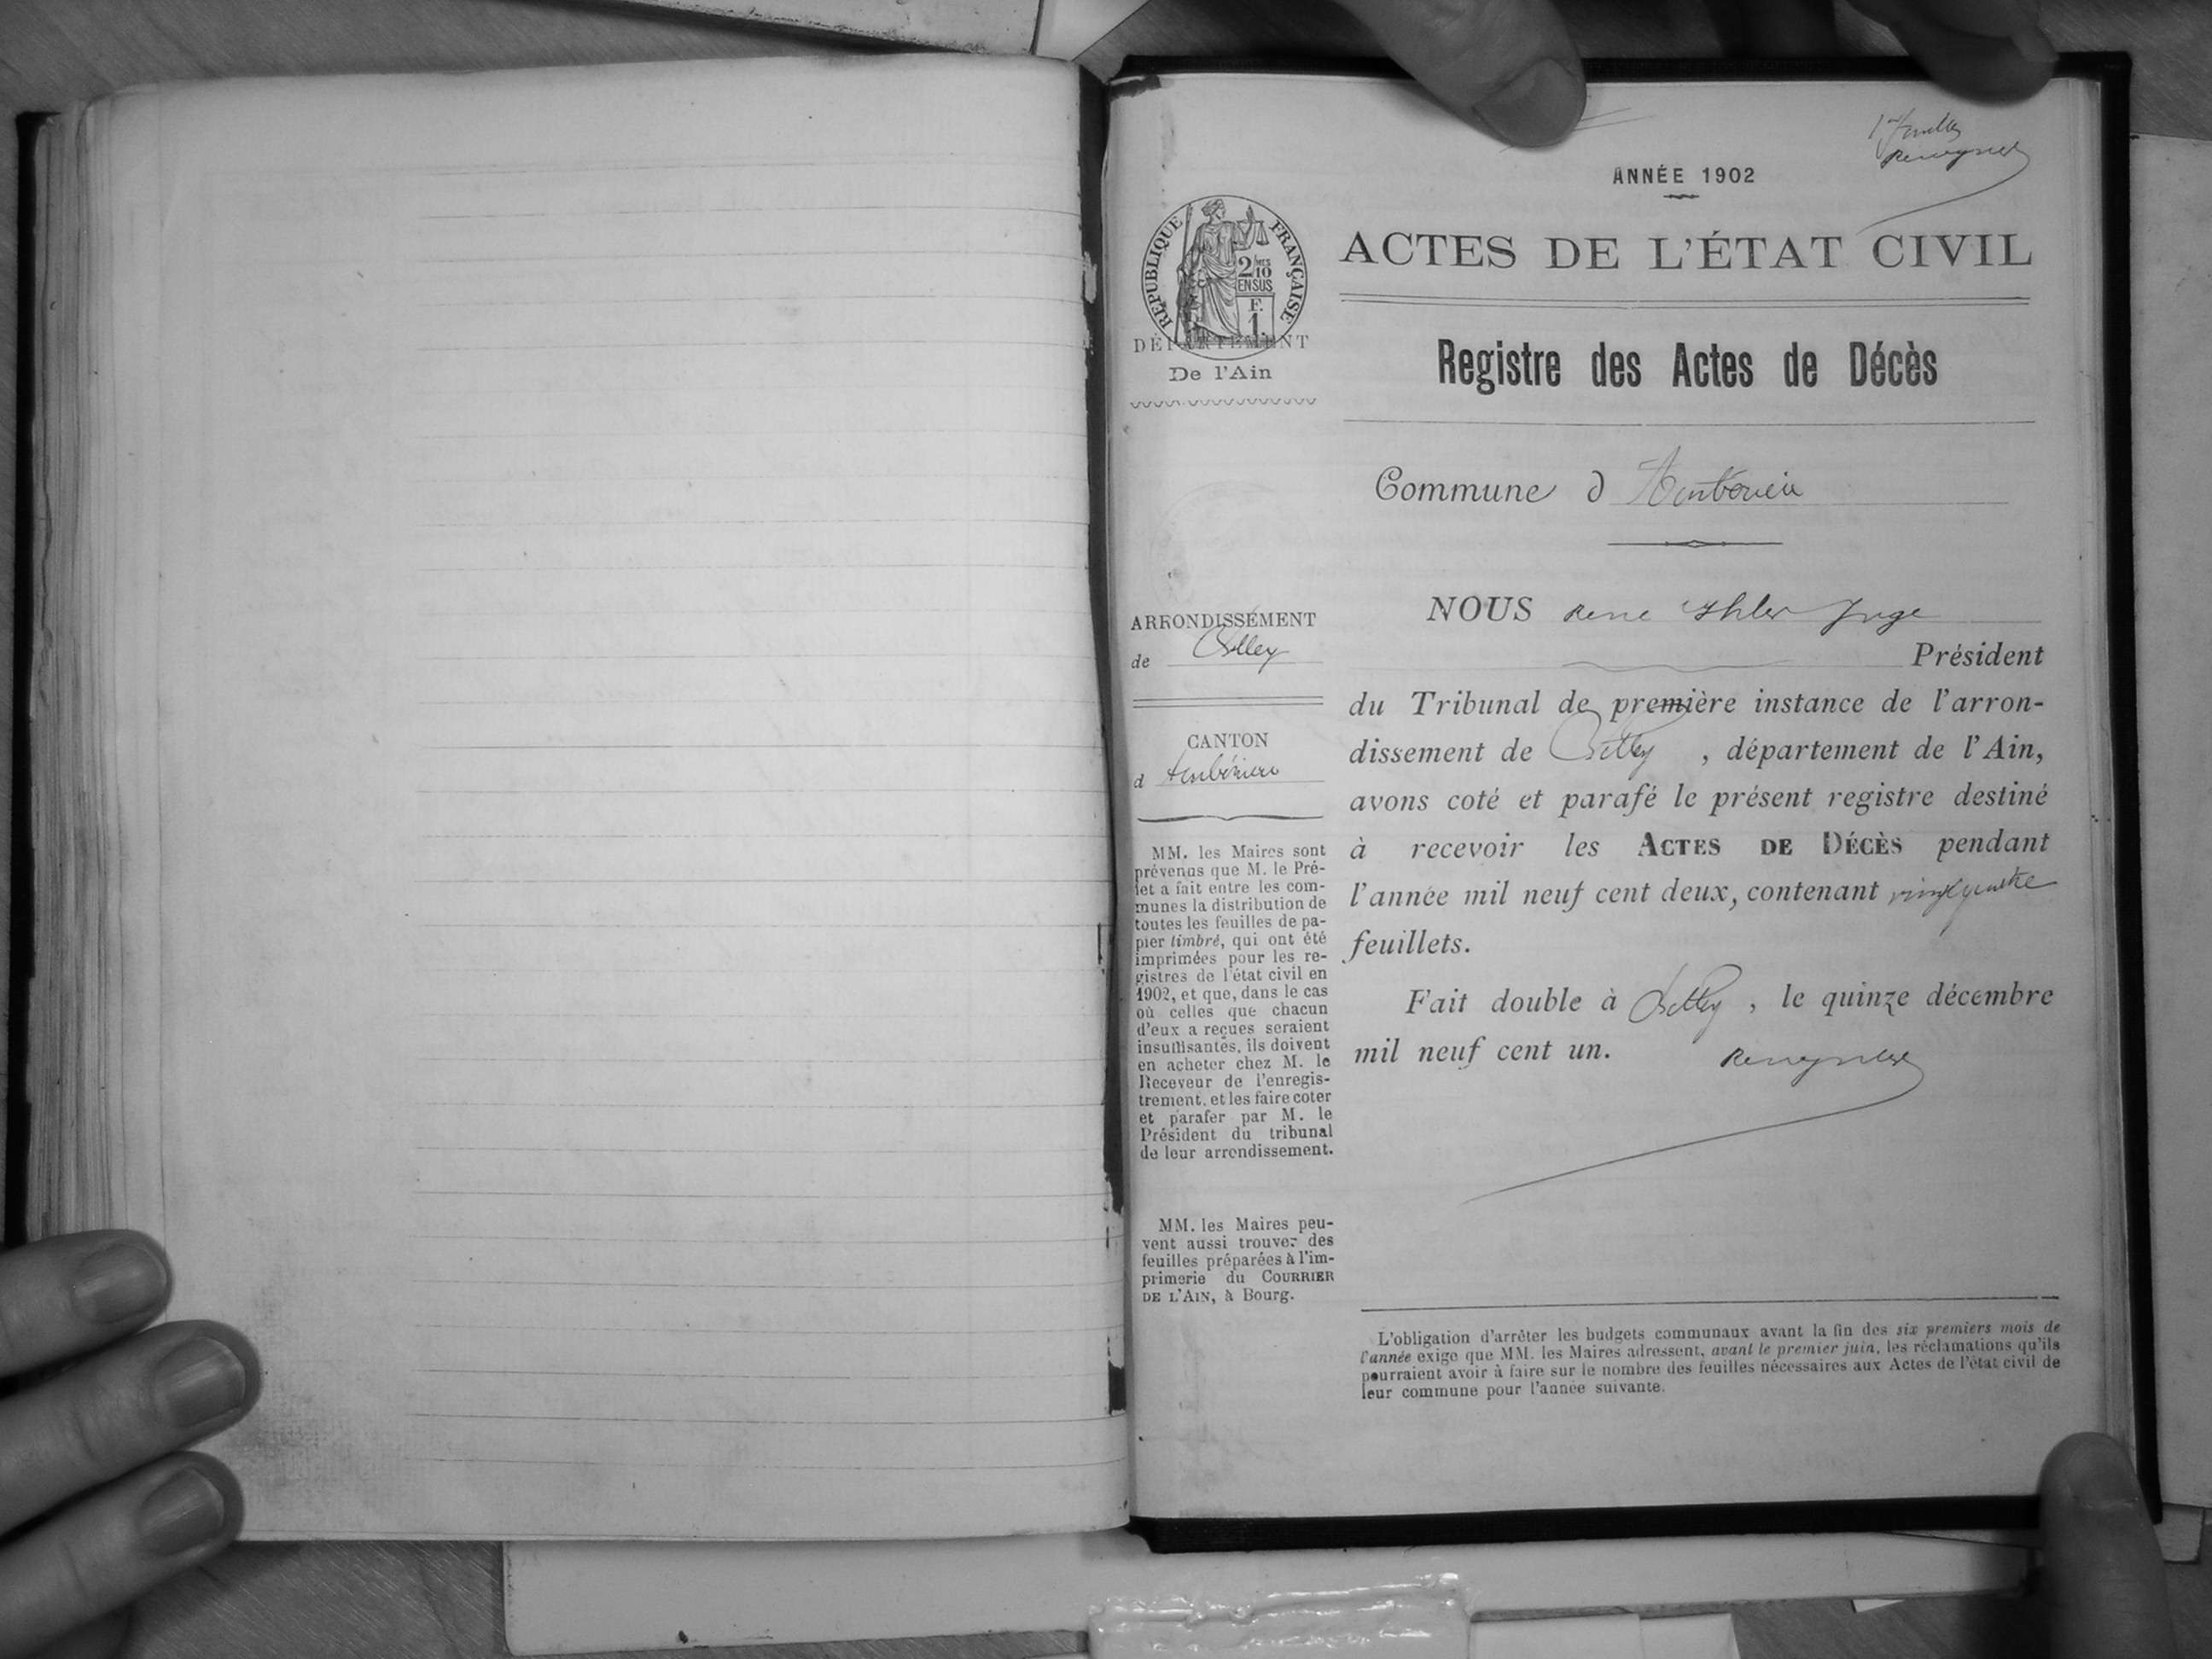 1er feuillet
ANNÉE 1902
RÉPUBLIQUE FRANÇAISE
2/10
EN SUS
F.
1.
ACTES DE L'ÉTAT CIVIL
DÉPARTEMENT
De l'Ain
Registre des Actes de Décès
Commune d Ambérieu
ARRONDISSEMENT
de Belley
CANTON
d Ambérieu
MM. les Maires sont
prévenus que M. le Pré-
fet a fait entre les com-
munes la distribution de
toutes les feuilles de pa-
pier timbré, qui ont été
imprimées pour les re-
gistres de l'état civil en
1902, et que, dans le cas
où celles que chacun
d'eux a reçues seraient
insuffisantes, ils doivent
en acheter chez M. le
Receveur de l'enregis-
trement, et les faire coter
et parafer par M. le
Président du tribunal
de leur arrondissement.
MM. les Maires peu-
vent aussi trouver des
feuilles préparées à l'im-
primerie du COURRIER
DE L'AIN, à Bourg.
NOUS René Juge
Président
du Tribunal de première instance de l'arron-
dissement de Belley, département de l'Ain,
avons coté et parafé le présent registre destiné
à recevoir les ACTES DE DÉCÈS pendant
l'année mil neuf cent deux, contenant vingt quatre
feuillets.
Fait double à Belley, le quinze décembre
mil neuf cent un.
L'obligation d'arrêter les budgets communaux avant la fin des six premiers mois de
l'année exige que MM. les Maires adressent, avant le premier juin, les réclamations qu'ils
pourraient avoir à faire sur le nombre des feuilles nécessaires aux Actes de l'état civil de
leur commune pour l'année suivante.